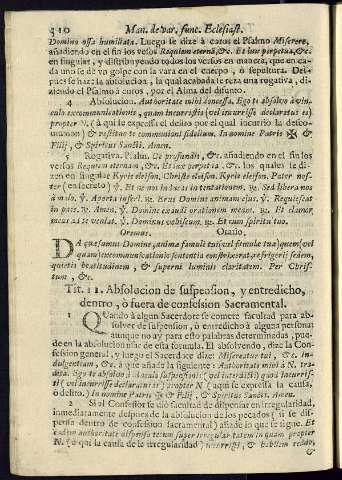 510 Man. de var. func. Eclesiast.
Domino ossa humiliata. Luego se dize à coros el Psalmo Miserere,
añadiendo en el fin los versos Requiem æternā, &c. Et lux perpetua, &c.
en singular, y distribuyendo todos los versos en manera, que en ca-
da uno se dè vn golpe con la vara en el cuerpo, ò sepultura. Des-
pues se haze la absolucion, la qual acabada se reza una rogativa, di-
ziendo el Psalmo à coros, por el Alma del difunto.
4 Absolucion. Authoritate mihi concessa. Ego te absolvo à vin-
culo excommunicationis, quam incurristi (vel incurrisse declaratus es)
propter N. (à qui se expressa el delito por el qual incurriò la desco-
munion) & restituo te communioni fidelium. In nomine Patris ✠ &
Filij, & Spiritus Sancti. Amen.
5 Rogativa. Psalm. De profundis, &c. añadiendo en el fin los
versos Requiem æternam, &c. Et lux perpetua, &c. los quales se di-
zen en singular Kyrie eleison. Christe eleison. Kyrie eleison. Pater nos-
ter (en secreto) ℣. Et ne nos inducas in tentationem. ℟. Sed libera nos
à malo. ℣. A porta inferi. ℟. Erue Domine animam ejus. ℣. Requiescat
in pace. ℟. Amen. ℣. Domine exaudi orationem meam. ℟. Et clamor
meus ad te veniat. ℣. Dominus vobiscum. ℟. Et cum spiritu tuo.
Oremus. Oratio.
DA quæsumus Domine, animæ famuli tui (vel famulæ tuæ) quem (vel
quam) excommunicationis sententia constrinxerat refrigerij sedem,
quietis beatitudinem, & superni luminis claritatem. Per Chris-
tum, &c.
Tit. 11. Absolucion de suspension, y entredicho,
dentro, ò fuera de confession Sacramental.
1 QUando à algun Sacerdote se comete facultad para ab-
solver de suspension, ò entredicho à alguna persona;
aunque no ay para esto palabras determinadas, pue-
de en la absolucion usar de esta formula. El absolvendo, dize la Con-
fession general, y luego el Sacerdote dize: Misereatur tui, &c. In-
dulgentiam, &c. à que añade la siguiente: Authoritate mihi à N. tra-
dita. Ego te absolvo à vinculo suspensionis (vel interdicti) quod incurris-
ti (vel incurrisse declaratus es) propter N. (aqui se expressa la causa,
ò delito.) In nomine Patris ✠ & Filij, & Spiritus Sancti. Amen.
2 Si al Confessor se diò facultad de dispensar en irregularidad,
inmediatamente despues de la absolucion de los pecados (si se dis-
pensa dentro de confession sacramental) añade lo que se sigue. Et
eadem authoritate dispenso tecum super irregularitatem in quam propter
N. (dirà la causa de la irregularidad) incurristi, & habilem reddo,